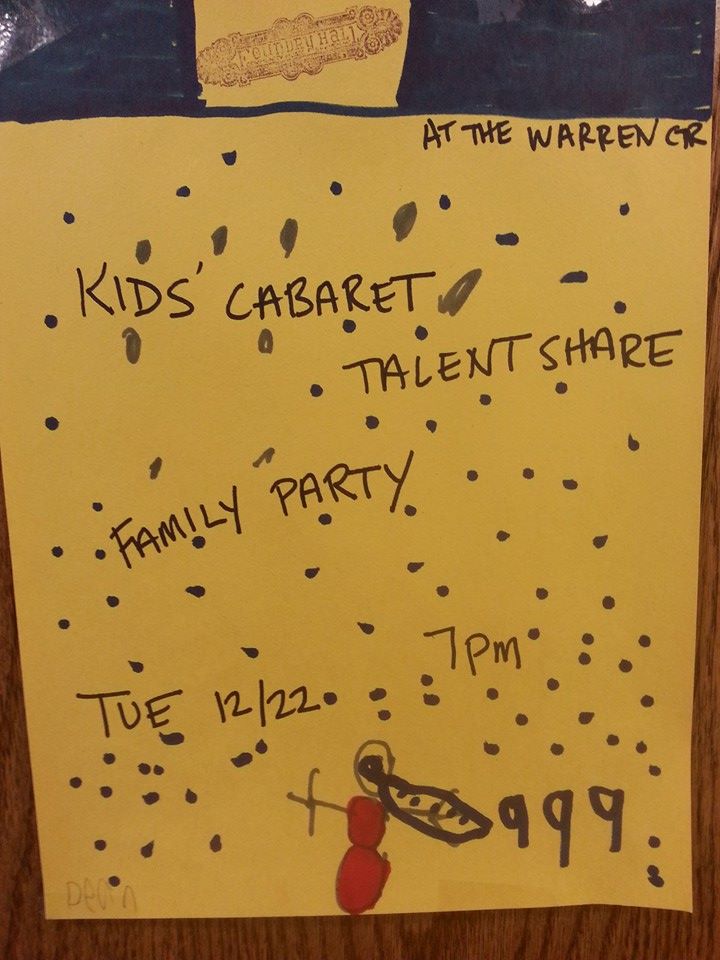 Foundry Hall
AT THE WARREN CTR
KIDS' CABARET
TALENT SHARE
FAMILY PARTY
7pm
TUE 12/22
999
Devin